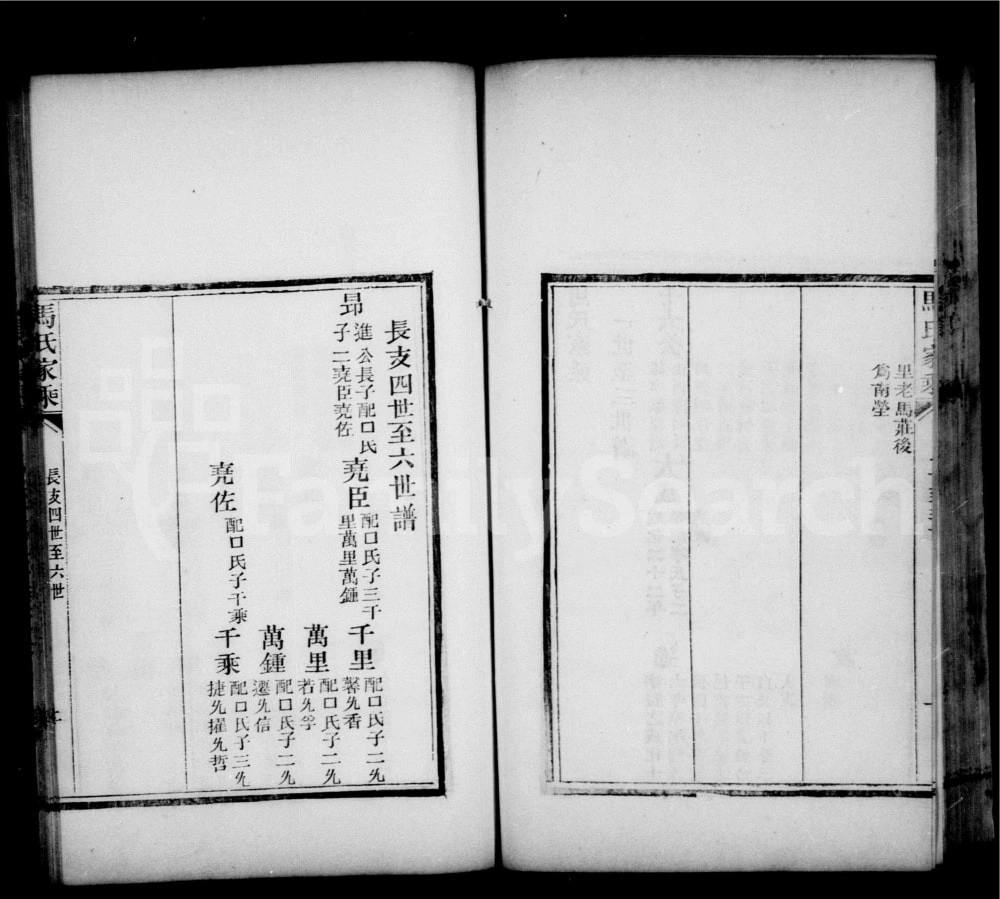 馬氏家乘
里老馬莊後
爲南塋
長支四世至六世譜
昻
進公長子配口氏
子二尭臣尭佐
尭臣
配口氏子三千
里萬里萬鍾
千里
配口氏子二兆
馨兆香
萬里
配口氏子二兆
若兆孚
萬鍾
配口氏子二兆
遷兆信
尭佐
配口氏子千乘
千乘
配口氏子三兆
捷兆擢兆哲
馬氏家乘
長支四世至六世
FamilySearch